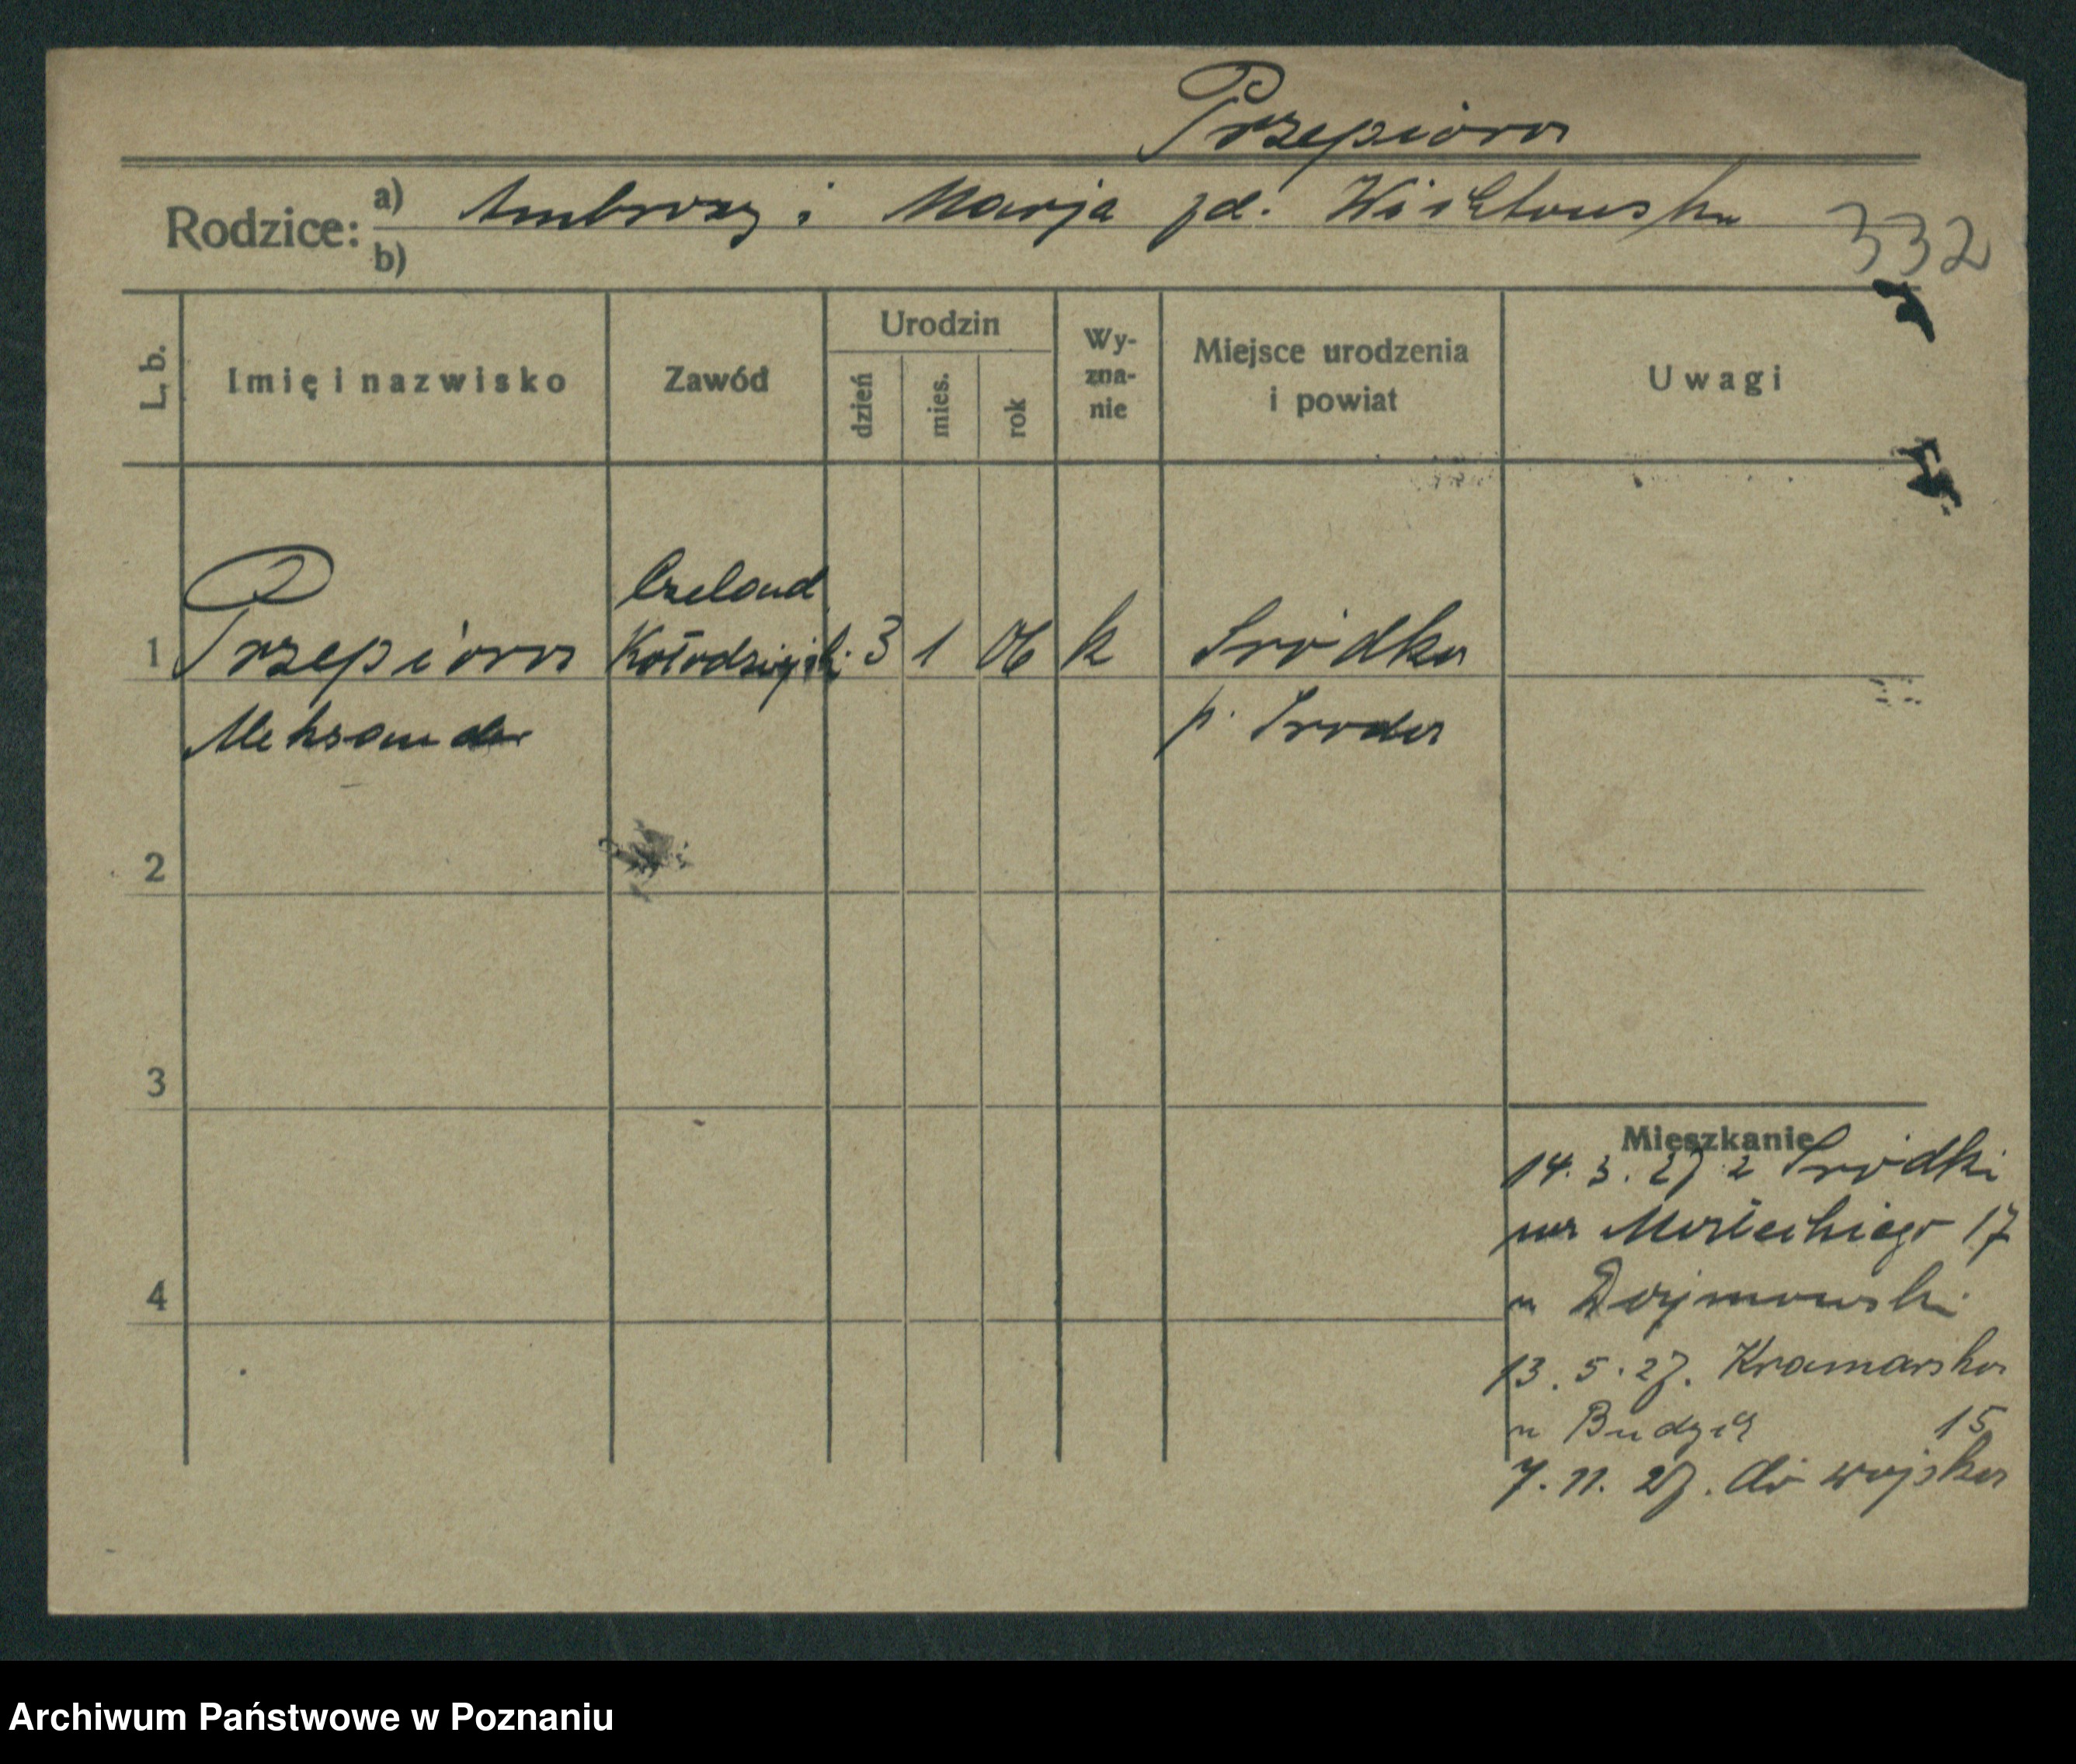 Przepióra
Rodzice: a) Ambroży i Marja zd. Wichłowska
b)
332
L. b. Imię i nazwisko Zawód Urodzin dzień mies. rok Wy-zna-nie Miejsce urodzenia i powiat Uwagi
1 Przepióra Czelad. Kołodziejski 3 1 06 k Śródka
Aleksander p. Środa
2
3
4
Mieszkanie
14. 3. 27 z Śródki
na 17
u
13. 5. 27. Kramarska
u Budzich 15
7. 11. 27. do wojska
Archiwum Państwowe w Poznaniu